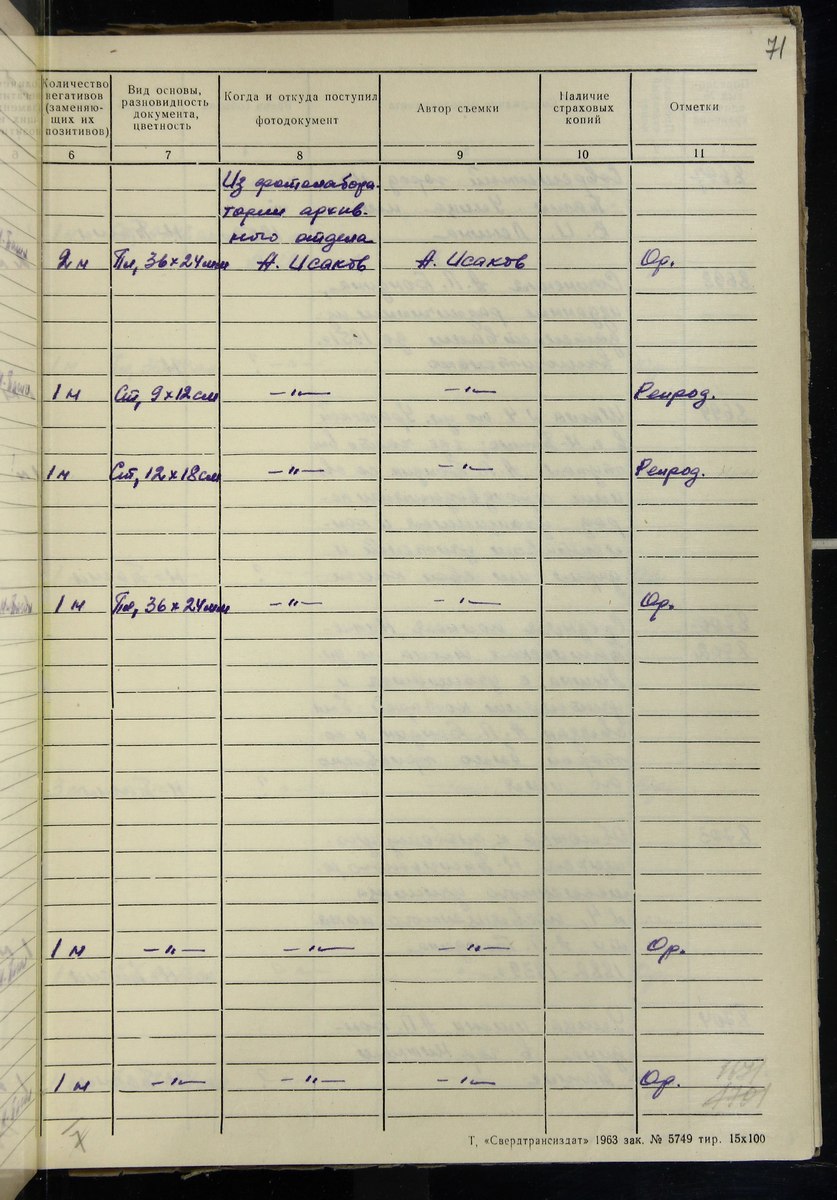 71
Количество негативов (заменяю- щих их позитивов)
Вид основы, разновидность документа, цветность
Когда и откуда поступил фотодокумент
Автор съемки
Наличие страховых копий
Отметки
6 7 8 9 10 11
Из фотолабора-
тории архив-
ного отдела
2 н Пл, 36×24мм А. Исаков А. Исаков Ор.
1 н Ст, 9×12см —"— —"— Репрод.
1 н Ст, 12×18см —"— —"— Репрод.
1 н Пл, 36×24мм —"— —"— Ор.
1 н —"— —"— —"— Ор.
1 н —"— —"— —"— Ор.
Т, «Свердтрансиздат» 1963 зак. № 5749 тир. 15х100